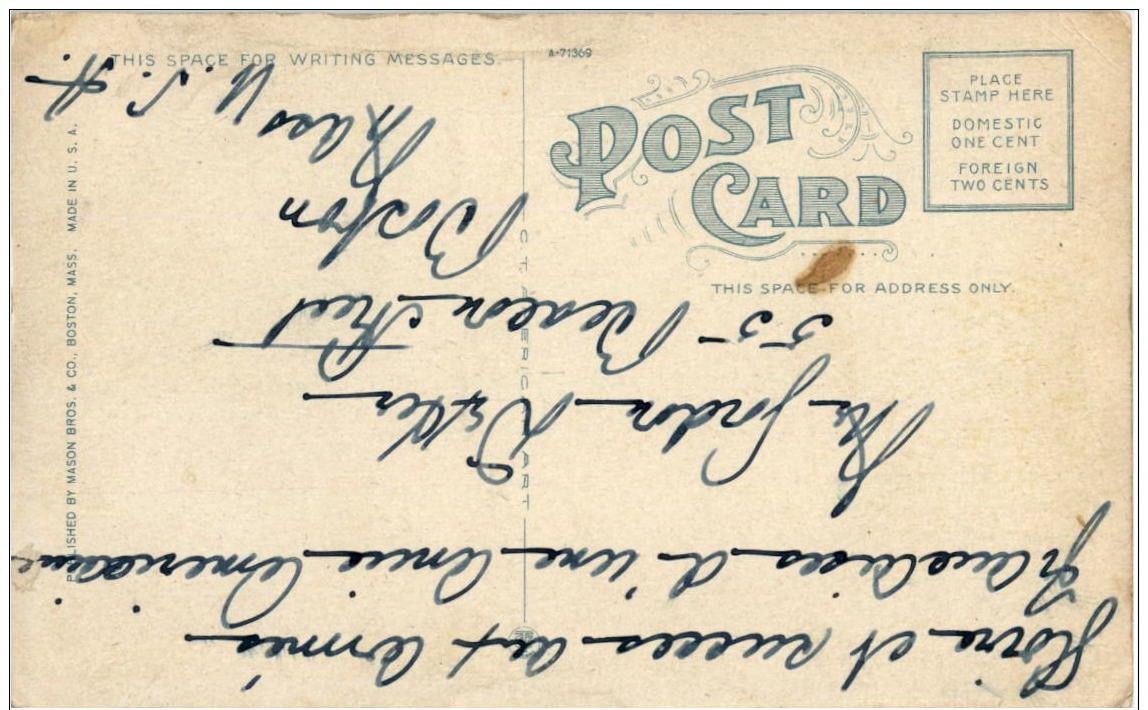 THIS SPACE FOR WRITING MESSAGES.
A-71369
POST
CARD
PLACE
STAMP HERE
DOMESTIC
ONE CENT
FOREIGN
TWO CENTS
THIS SPACE FOR ADDRESS ONLY.
PUBLISHED BY MASON BROS. & CO., BOSTON, MASS. MADE IN U. S. A.
C. T. AMERICAN ART
Gloire et succes aux Armés
françaises d'une Amie Americaine
Mr Gordon
55 Beacon Street
Boston
Mass U. S. A.